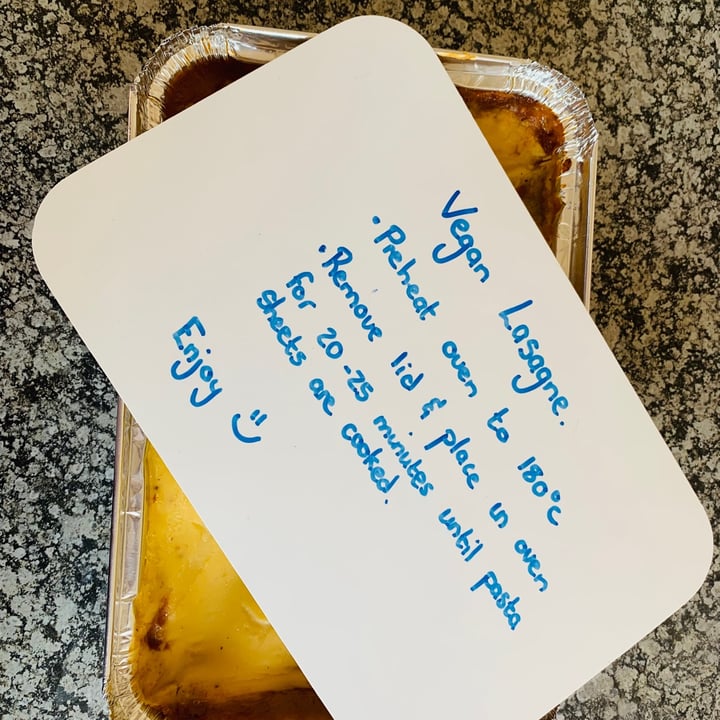 Vegan Lasagne.
• Preheat oven to 180°C
• Remove lid & place in oven
for 20-25 minutes until pasta
sheets are cooked.
Enjoy